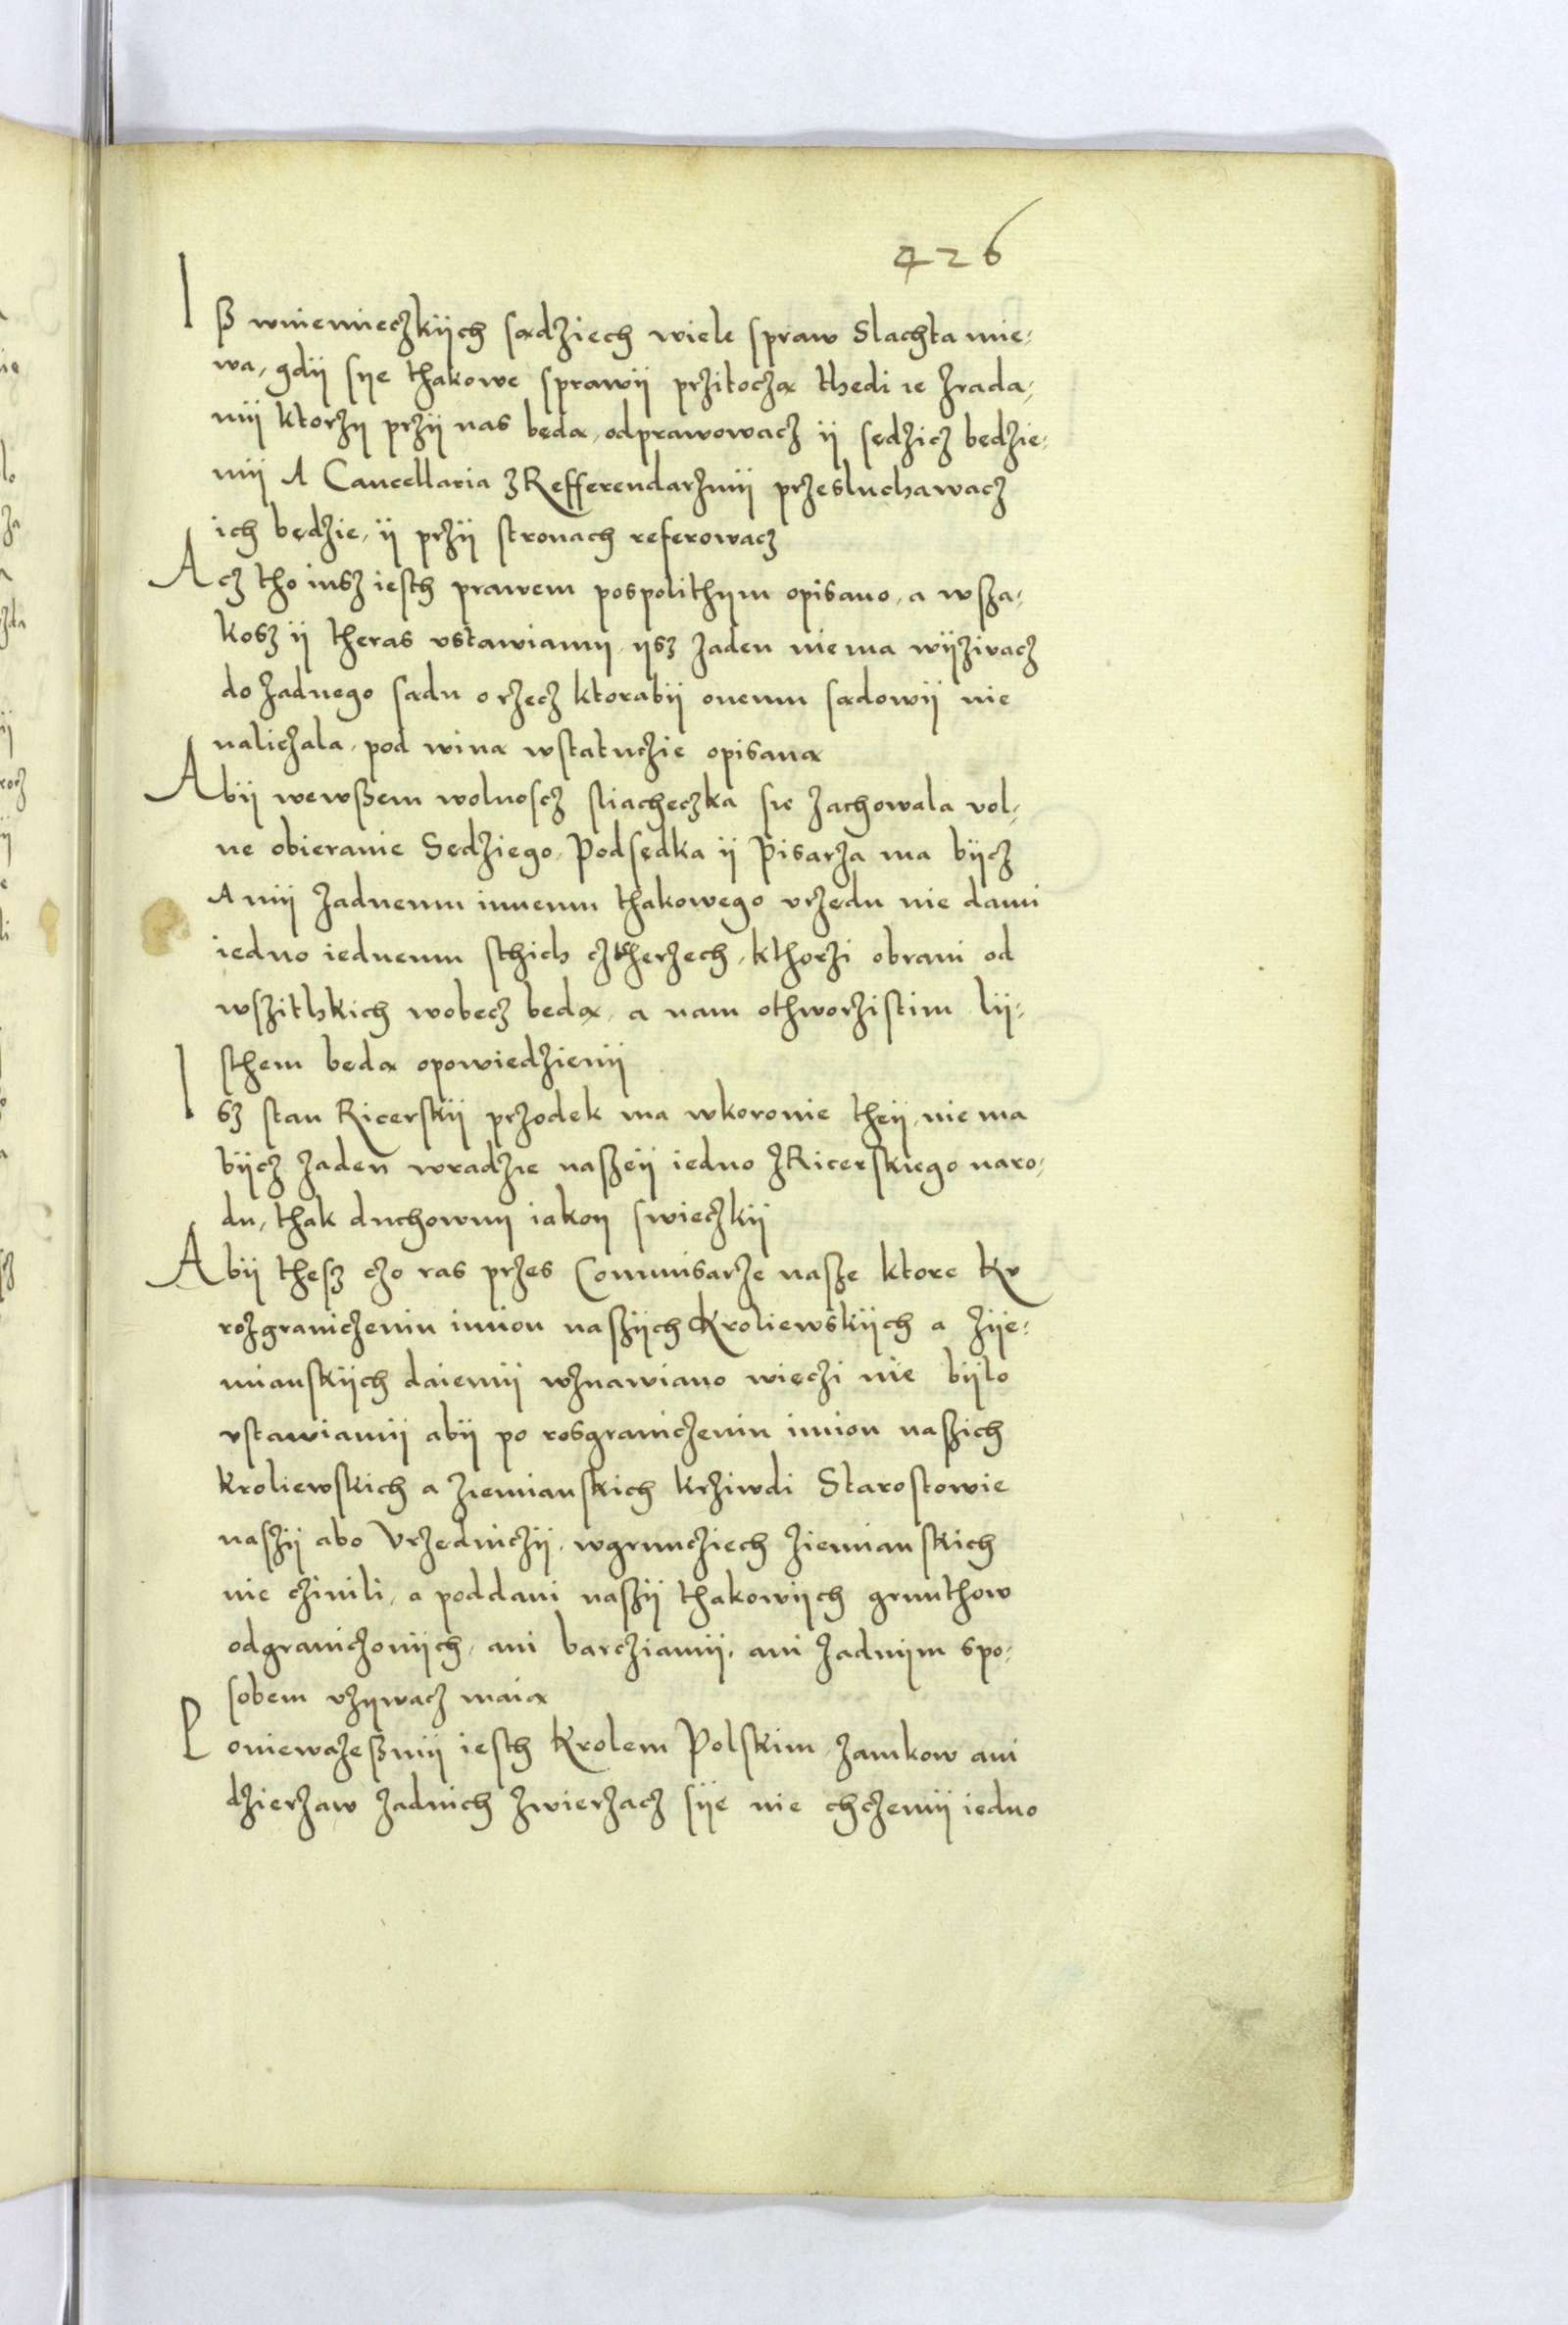 426
Iß wniemieczkÿch sądziech wiele spraw Slachta mie-
wa, gdÿ sÿe thakowe sprawÿ przitoczą thedi ie zrada-
mÿ ktorzy przÿ nas będą, odprawowacz ÿ sędzicz będzie-
mÿ A Cancellaria z Refferendarzmÿ przesluchawacz
ich będzie, ÿ przÿ stronach referowacz
Acz tho iusz iesth prawem pospolithym opisano, a wsza-
kosz ÿ theras ustawiamy, ysz zaden niema wÿzivacz
do zadnego sądu o rzecz ktorabÿ onemu sądowÿ nie
nalieżala, pod winą wstatuczie opisaną
Abÿ wewßem wolnoscz sliacheczka sie zachowala vol-
ne obieranie Sędziego, Podsędka ÿ Pisarza ma bÿcz
A mÿ zadnemu innemu thakowego vrzędu nie dami
iedno iednemu sthich cztherzech, kthorzi obrani od
wszithkich wobecz będą, a nam othworzistim lÿ-
sthem będą opowiedzienÿ
Isz stan Ricerskÿ przodek ma wkoronie theÿ, niema
bÿcz zaden wradzie naszeÿ iedno z Ricerskiego naro-
du, thak duchowny iakoy swieczkÿ
Abÿ thesz czo ras przes Commisarze nasze ktore kv
rozgraniczeniu imion naszÿch Kroliewskÿch a zÿe-
mianskÿch daiemÿ wznawiano więczi nie bÿlo
vstawiamÿ abÿ po rosgraniczeniu imion naszich
kroliewskich a ziemianskich krziwdi Starostowie
naszÿ abo Vrzedniczÿ, wgrunciech ziemianskich
nie czinili, a poddani naszÿ thakowÿch grunthow
odgraniczonÿch, ani barcziamÿ, ani zadnym spo-
sobem vzywacz maią
Ponieważeßmÿ iesth Krolem Polskim, zamkow ani
dzierzaw zadnich zwierzacz sÿe nie chczemÿ iedno